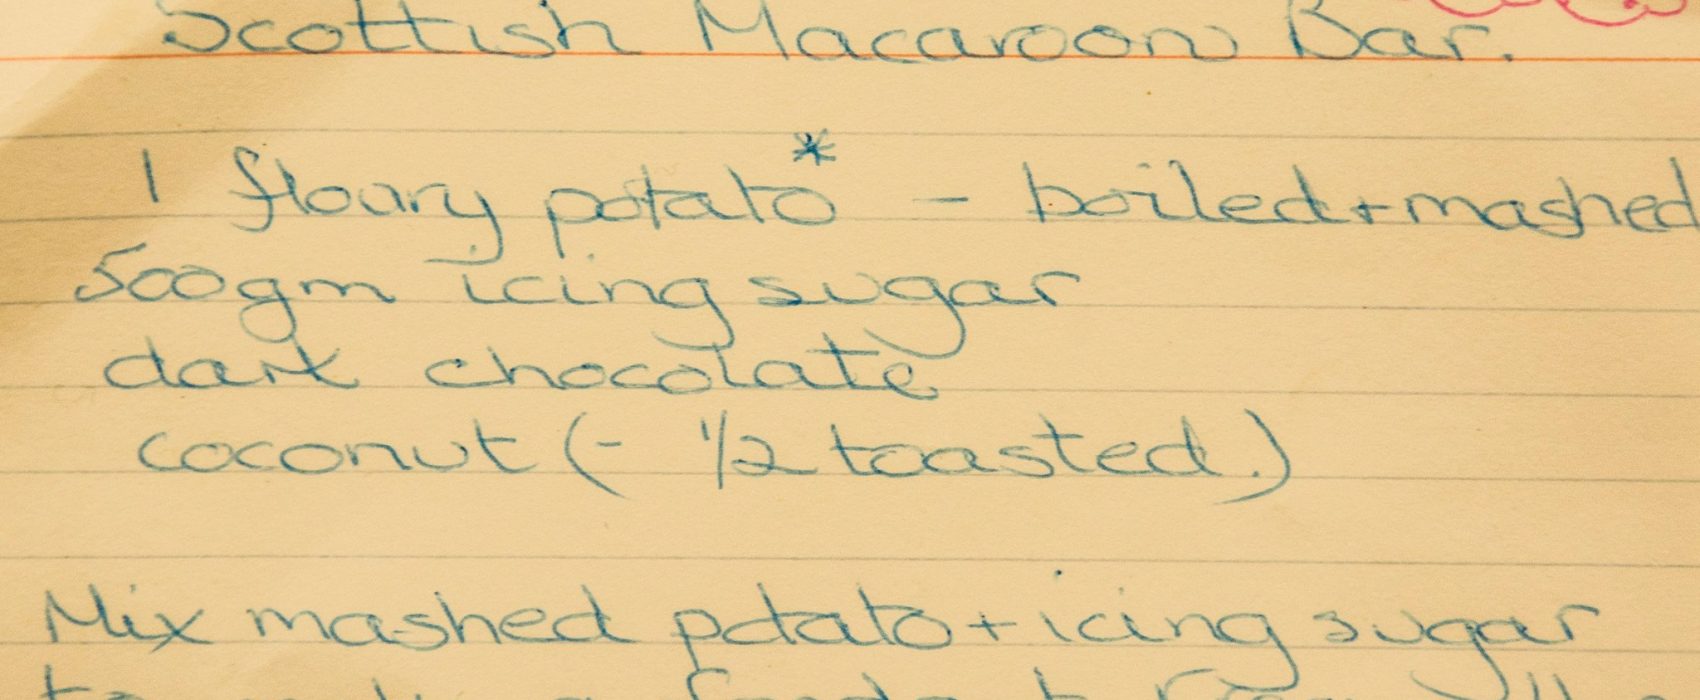 Scottish Macaroon Bar.
1 floury potato* - boiled + mashed
500gm icing sugar
dark chocolate
coconut (- 1/2 toasted.)
Mix mashed potato + icing sugar